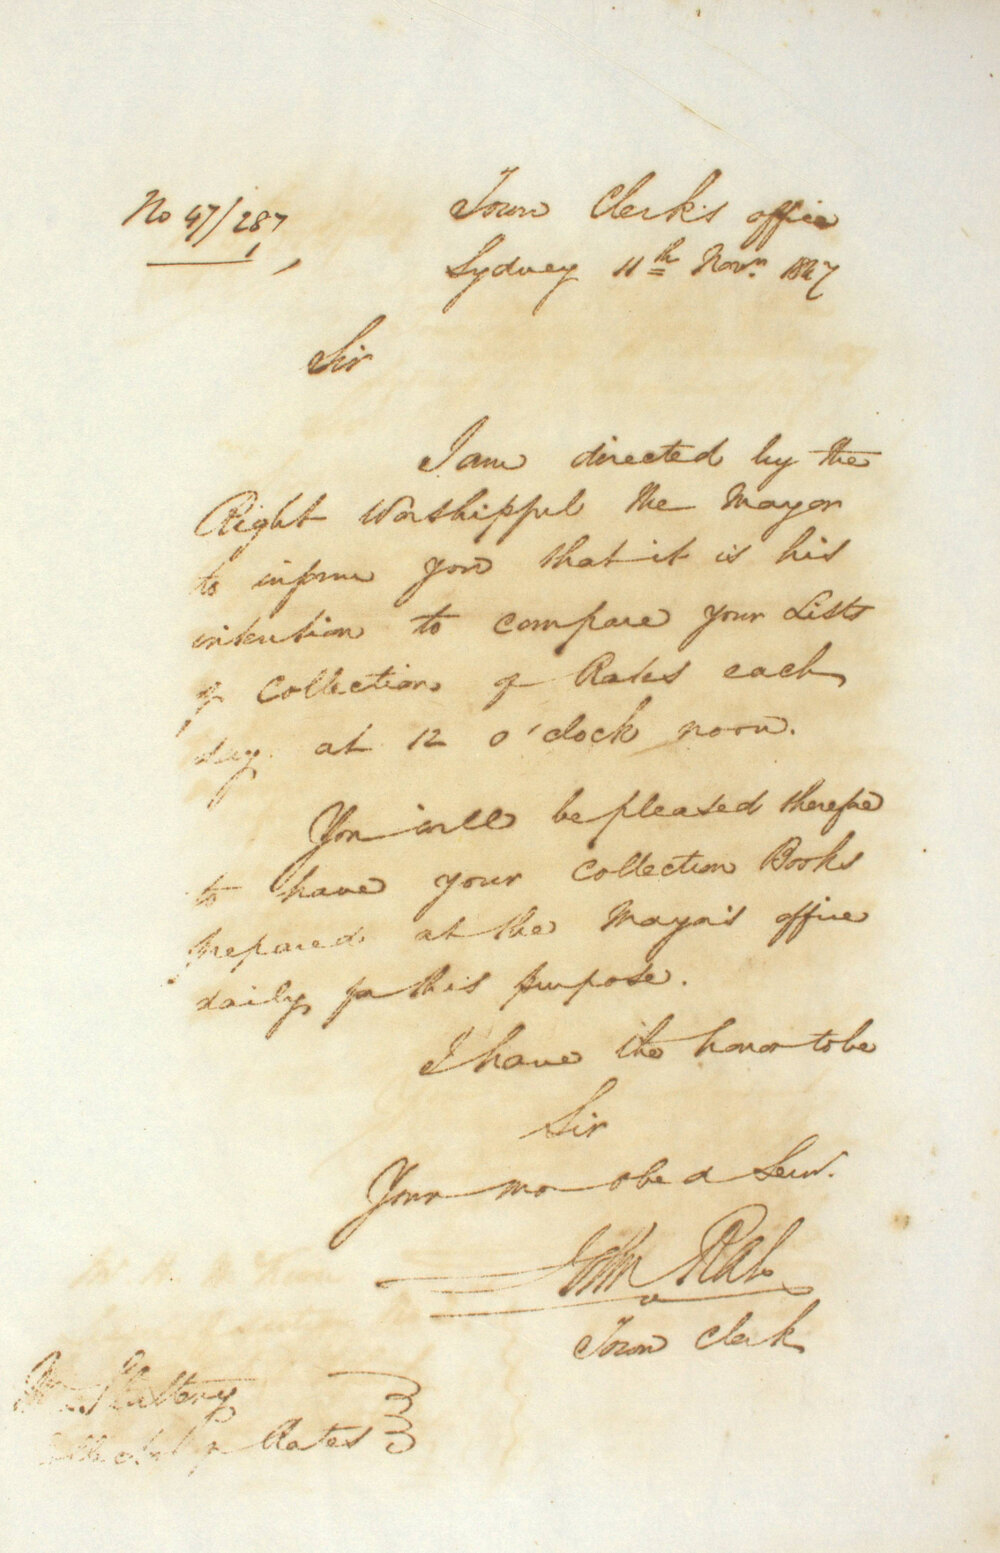 No 47/287
Town Clerk's office
Sydney 11th Novr. 1847
Sir
I am directed by the
Right Worshipful the Mayor
to inform you that it is his
intention to compare your Lists
of Collection of Rates each
day at 12 o'clock noon.
You will be pleased therefore
to have your Collection Books
prepared at the Mayor's office
daily for this purpose.
I have the honor to be
Sir
Your mo obed Serv.
John Rae
Town Clerk
Mr Slattery
of Rates